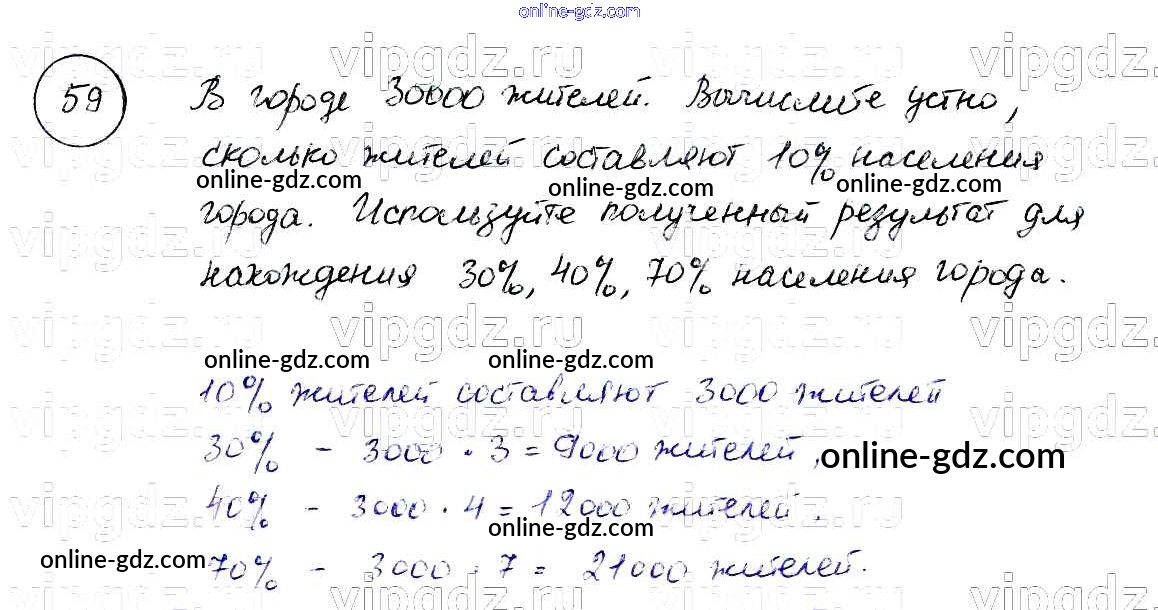 online-gdz.com
59
В городе 30000 жителей. Вычислите устно,
сколько жителей составляют 10% населения
города. Используйте полученный результат для
нахождения 30%, 40%, 70% населения города.
10% жителей составляют 3000 жителей
30% - 3000 · 3 = 9000 жителей,
40% - 3000 · 4 = 12000 жителей.
70% - 3000 · 7 = 21000 жителей.
vipgdz.ru
vipgdz.ru
vipgdz.ru
vipgdz.ru
vipgdz.ru
vipgdz.ru
vipgdz.ru
vipgdz.ru
vipgdz.ru
online-gdz.com
online-gdz.com
online-gdz.com
online-gdz.com
online-gdz.com
online-gdz.com
online-gdz.com
online-gdz.com